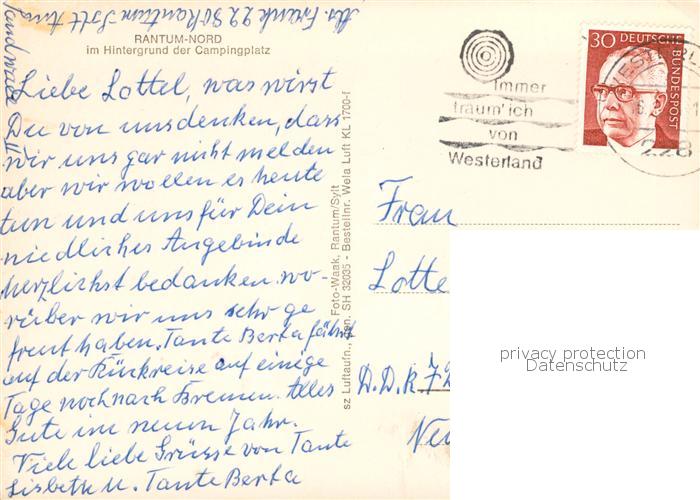 RANTUM-NORD
im Hintergrund der Campingplatz
Liebe Lottel, was wirst
Du von uns denken, dass
wir uns gar nicht melden
aber wir wollen es heute
tun und uns für Dein
niedliches Angebinde
herzlichst bedanken. wo-
rüber wir uns sehr ge
freut haben. Tante Berta fährt
auf der Rückreise auf einige
Tage noch nach Bremen. Alles
Gute im neuen Jahr.
Viele liebe Grüsse von Tante
Lisbeth u. Tante Berta
Foto-Waak, Rantum/Sylt
sz Luftaufn., SH 32035 - Bestellnr. Wela Luft KL 1700-f
Immer
traum' ich
von
Westerland
30 DEUTSCHE BUNDESPOST
228
Frau
Lotte
D.D.R 72
privacy protection
Datenschutz